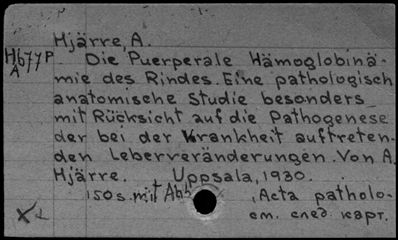 Hjärre, A.
Н677Р
A
Die Puerperale Hämoglobinä-
mie des Rindes. Eine pathologisch
anatomische Studie besonders
mit Rücksicht auf die Pathogenese
der bei der Krankheit auftreten-
den Leberveränderungen. Von A.
Hjärre. Uppsala, 1930.
150s. mit Abb. Acta patholo-
см. след. карт.